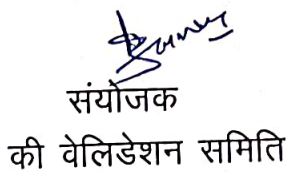 संयोजक
की वेलिडेशन समिति